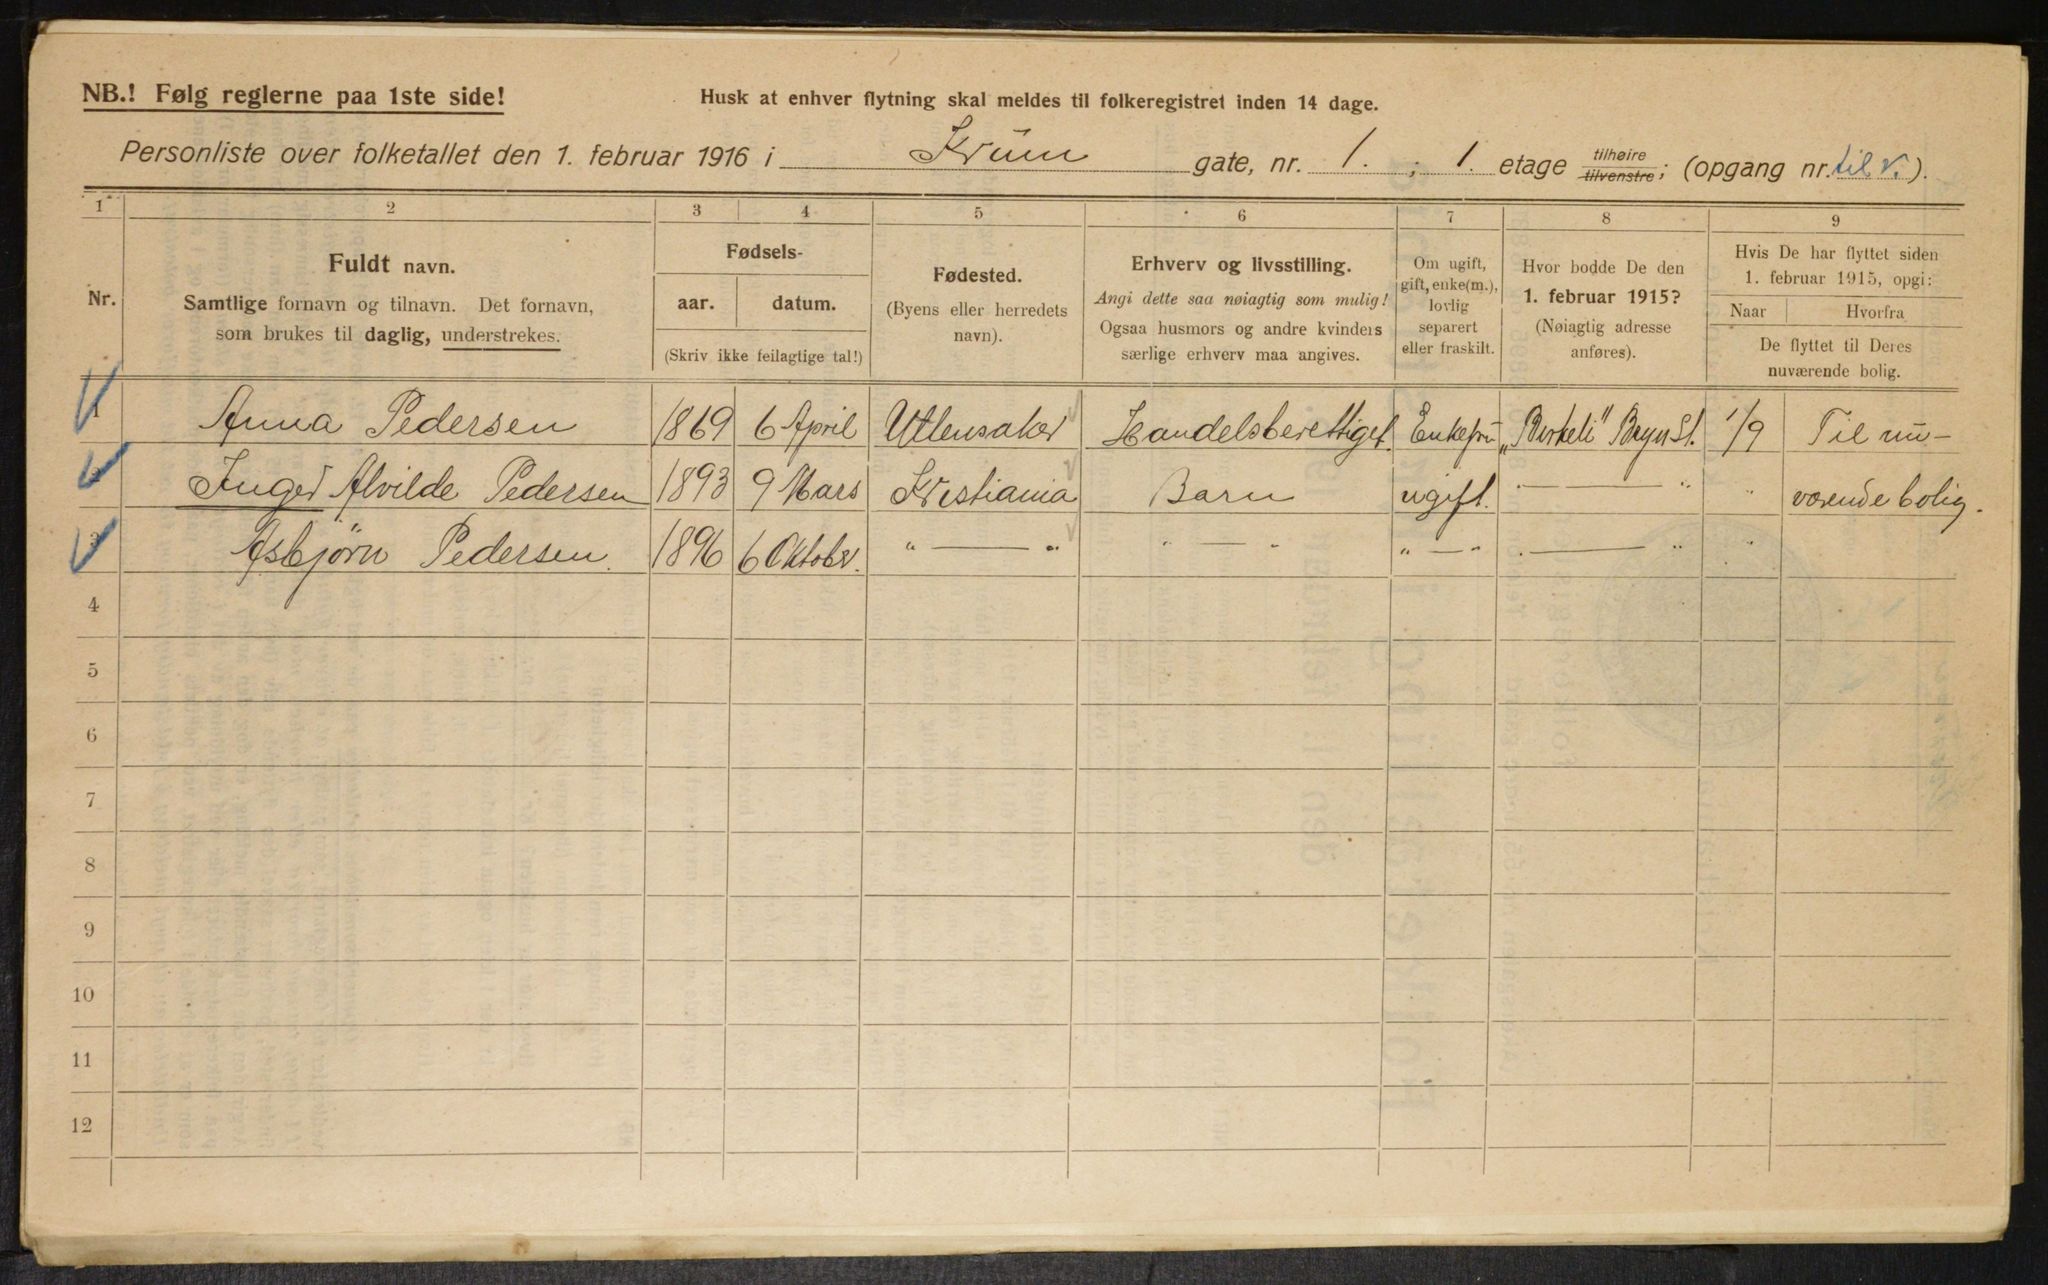 NB.! Følg reglerne paa 1ste side!
Husk at enhver flytning skal meldes til folkeregistret inden 14 dage.
Personliste over folketallet den 1. februar 1916 i Krüm gate, nr. 1. ; 1. etage tilhøire tilvenstre; (opgang nr. til v.).
1 2 3 4 5 6 7 8 9
Nr.
Fuldt navn.
Samtlige fornavn og tilnavn. Det fornavn,
som brukes til daglig, understrekes.
Fødsels-
aar. datum.
(Skriv ikke feilagtige tal!)
Fødested.
(Byens eller herredets
navn).
Erhverv og livsstilling.
Angi dette saa nøiagtig som mulig!
Ogsaa husmors og andre kvinders
særlige erhverv maa angives.
Om ugift,
gift, enke(m.),
lovlig
separert
eller fraskilt.
Hvor bodde De den
1. februar 1915?
(Nøiagtig adresse
anføres).
Hvis De har flyttet siden
1. februar 1915, opgi:
Naar Hvorfra
De flyttet til Deres
nuværende bolig.
1 Anna Pedersen 1869 6 April Ullensaker Handelsberettiget. Enkefrü „Birkeli" Bryn St. 1/9 Til nü-
2 Inger Alvilde Pedersen 1893 9 Mars Kristiania Barn ugift. " — " " værende bolig.
3 Asbjörn Pedersen. 1896 6 Oktober. " — " " — " " — " " — " "
4
5
6
7
8
9
10
11
12